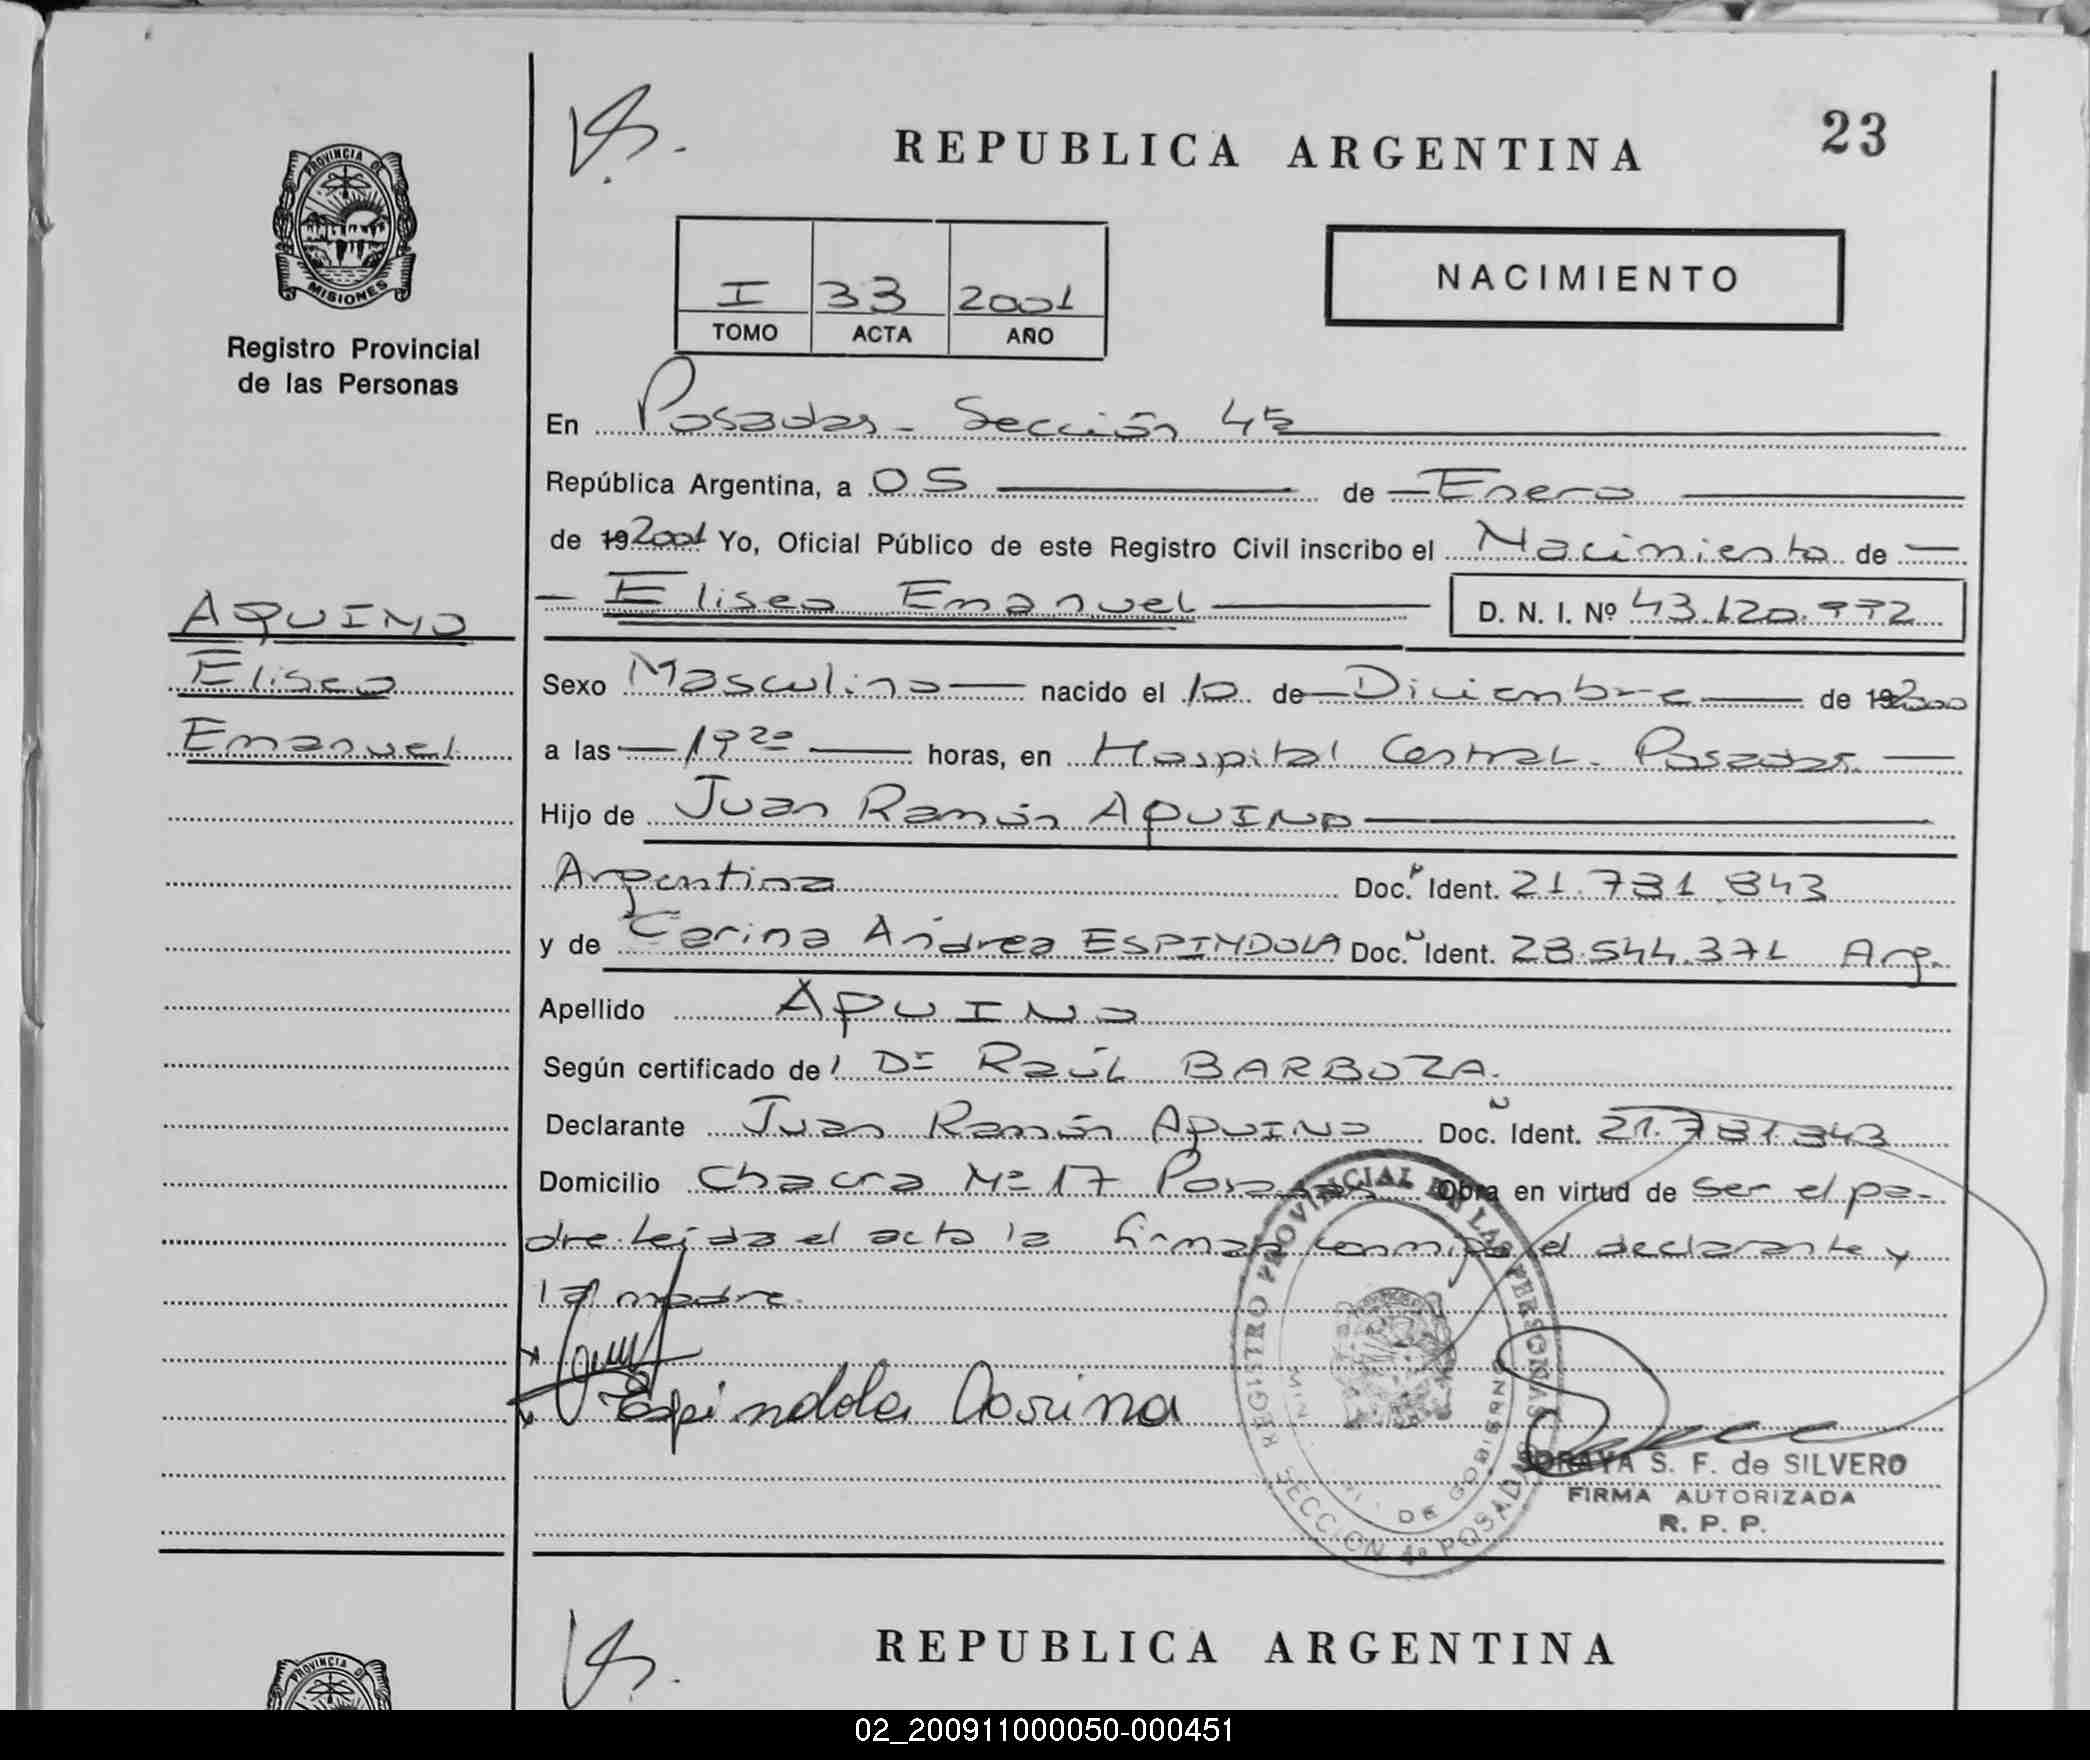 REPUBLICA ARGENTINA
23
PROVINCIA DE
MISIONES
Registro Provincial
de las Personas
I 33 2001
TOMO ACTA AÑO
NACIMIENTO
En Posadas - Sección 4ª
República Argentina, a 05 de Enero
de 19 2001 Yo, Oficial Público de este Registro Civil inscribo el Nacimiento de
Eliseo Emanuel D. N. I. Nº 43.120.972
AQUINO
Eliseo
Emanuel
Sexo Masculino nacido el 10 de Diciembre de 19 2000
a las 19 20 horas, en Hospital Central - Posadas.
Hijo de Juan Ramón AQUINO
Argentina Doc. Ident. 21.781.843
y de Carina Andrea ESPINDOLA Doc. Ident. 28.544.371 Arg.
Apellido AQUINO
Según certificado del Dr Raúl BARBOZA.
Declarante Juan Ramón AQUINO Doc. Ident. 21.781.843
Domicilio Chacra Nº 17 Posadas Obra en virtud de ser el pa-
dre. Leída el acta la firman conmigo el declarante y
la madre.
Espindola Carina
REGISTRO PROVINCIAL DE LAS PERSONAS
MIN DE GOBIERNO
SECCION 4ª POSADAS
SORAYA S. F. de SILVERO
FIRMA AUTORIZADA
R. P. P.
REPUBLICA ARGENTINA
PROVINCIA D
02_200911000050-000451